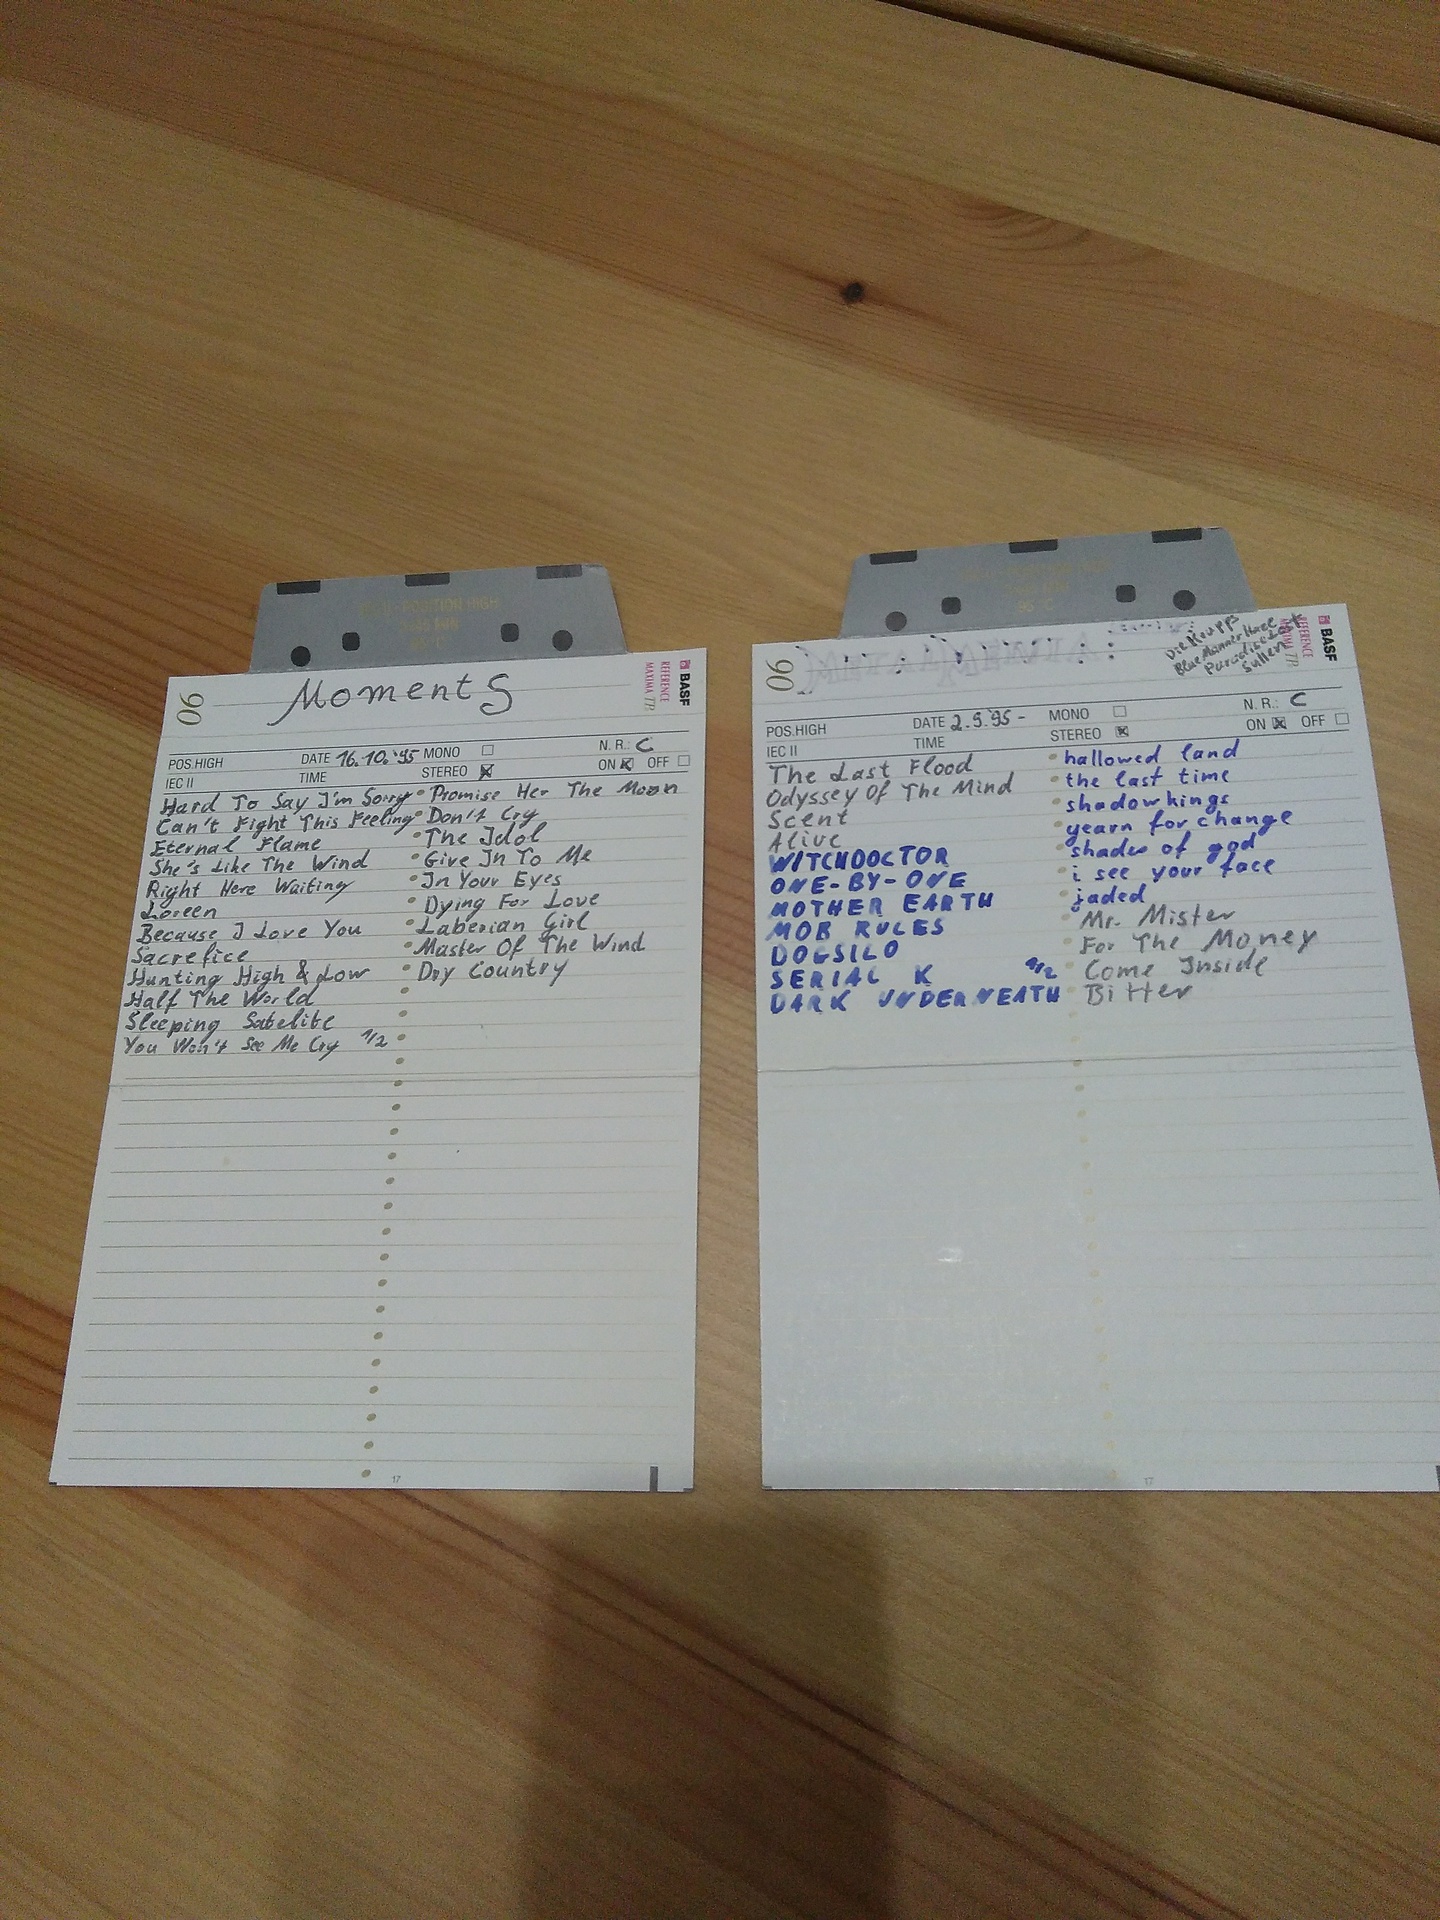 90
Moments
BASF
REFERENCE
MAXIMA TP
POS.HIGH
IEC II
DATE 16.10.'95
TIME
MONO
STEREO
N. R.: C
ON OFF
Hard To Say I'm Sorry
Can't Fight This Feeling
Eternal Flame
She's Like The Wind
Right Here Waiting
Loreen
Because I Love You
Sacrefice
Hunting High & Low
Half The World
Sleeping Satelite
You Won't See Me Cry 1/2
Promise Her The Moon
Don't Cry
The Idol
Give In To Me
In Your Eyes
Dying For Love
Laberian Girl
Master Of The Wind
Dry Country
17
90
Die Krupps
Blue Manner Haze
Paradise Lost
Sullen
BASF
REFERENCE
MAXIMA TP
POS.HIGH
IEC II
DATE 2.9.95 -
TIME
MONO
STEREO
N. R.: C
ON OFF
The Last Flood
Odyssey Of The Mind
Scent
Alive
WITCHDOCTOR
ONE-BY-ONE
MOTHER EARTH
MOB RULES
DOGSILO
SERIAL K 1/2
DARK UNDERNEATH
hallowed land
the last time
shadowkings
yearn for change
shades of god
i see your face
jaded
Mr. Mister
For The Money
Come Inside
Bitter
17